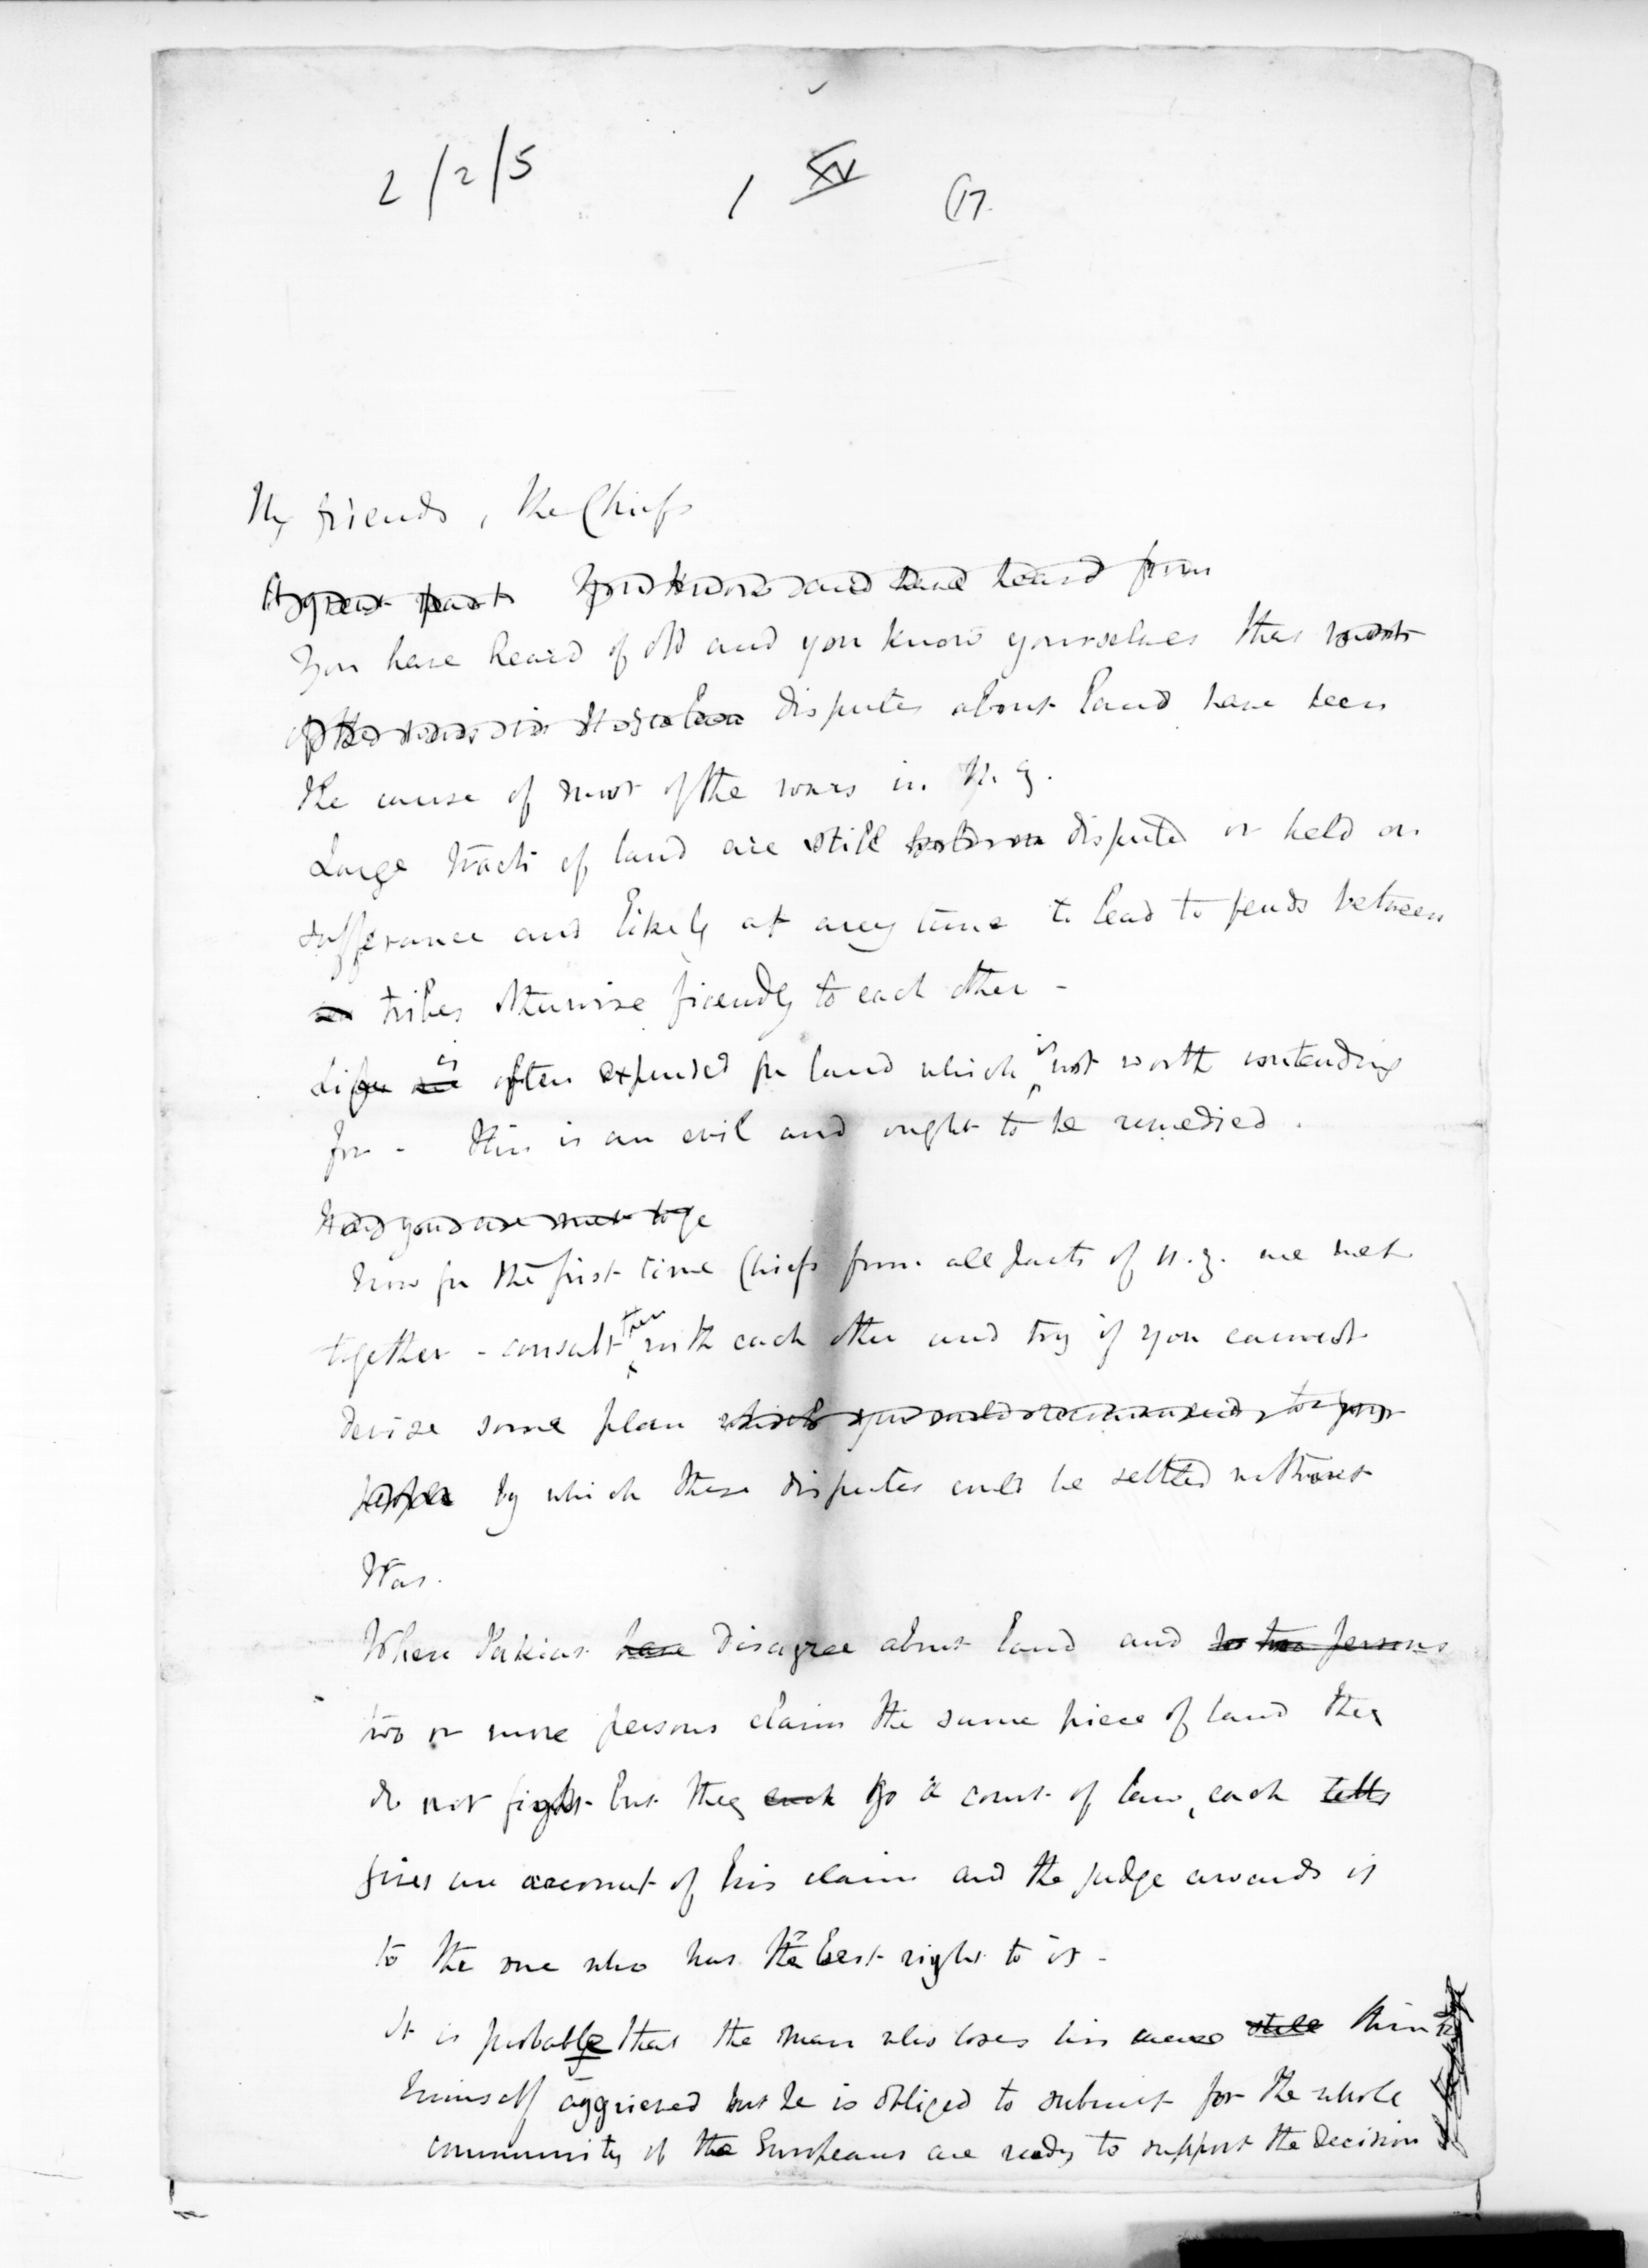 2/2/5 / XV (17.
My friends, The Chiefs
A great part You know and have heard from
You have heard of old and you know yourselves that most
of the wars in disputes about land have been
the cause of most of the wars in N. Z.
Large tracts of land are still disputed or held on
sufferance and likely at any time to lead to feuds between
tribes otherwise friendly to each other -
Life is often expended for land which is not worth contending
for - This is an evil and ought to be remedied.
And you are met toge
Now for the first time Chiefs from all parts of N. Z. are met
together - consult then with each other and try if you cannot
devise some plan which you could recommend to your
people by which these disputes could be settled without
War.
When Pakias have disagree about land and two persons
two or more persons claim the same piece of land they
do not fight but they each go to court of law, each tells
gives an account of his claim and the judge awards it
to the one who has the best right to it -
It is probable that the man who loses his thinks
himself aggrieved but he is obliged to submit for the whole
community of the Europeans are ready to support the decision